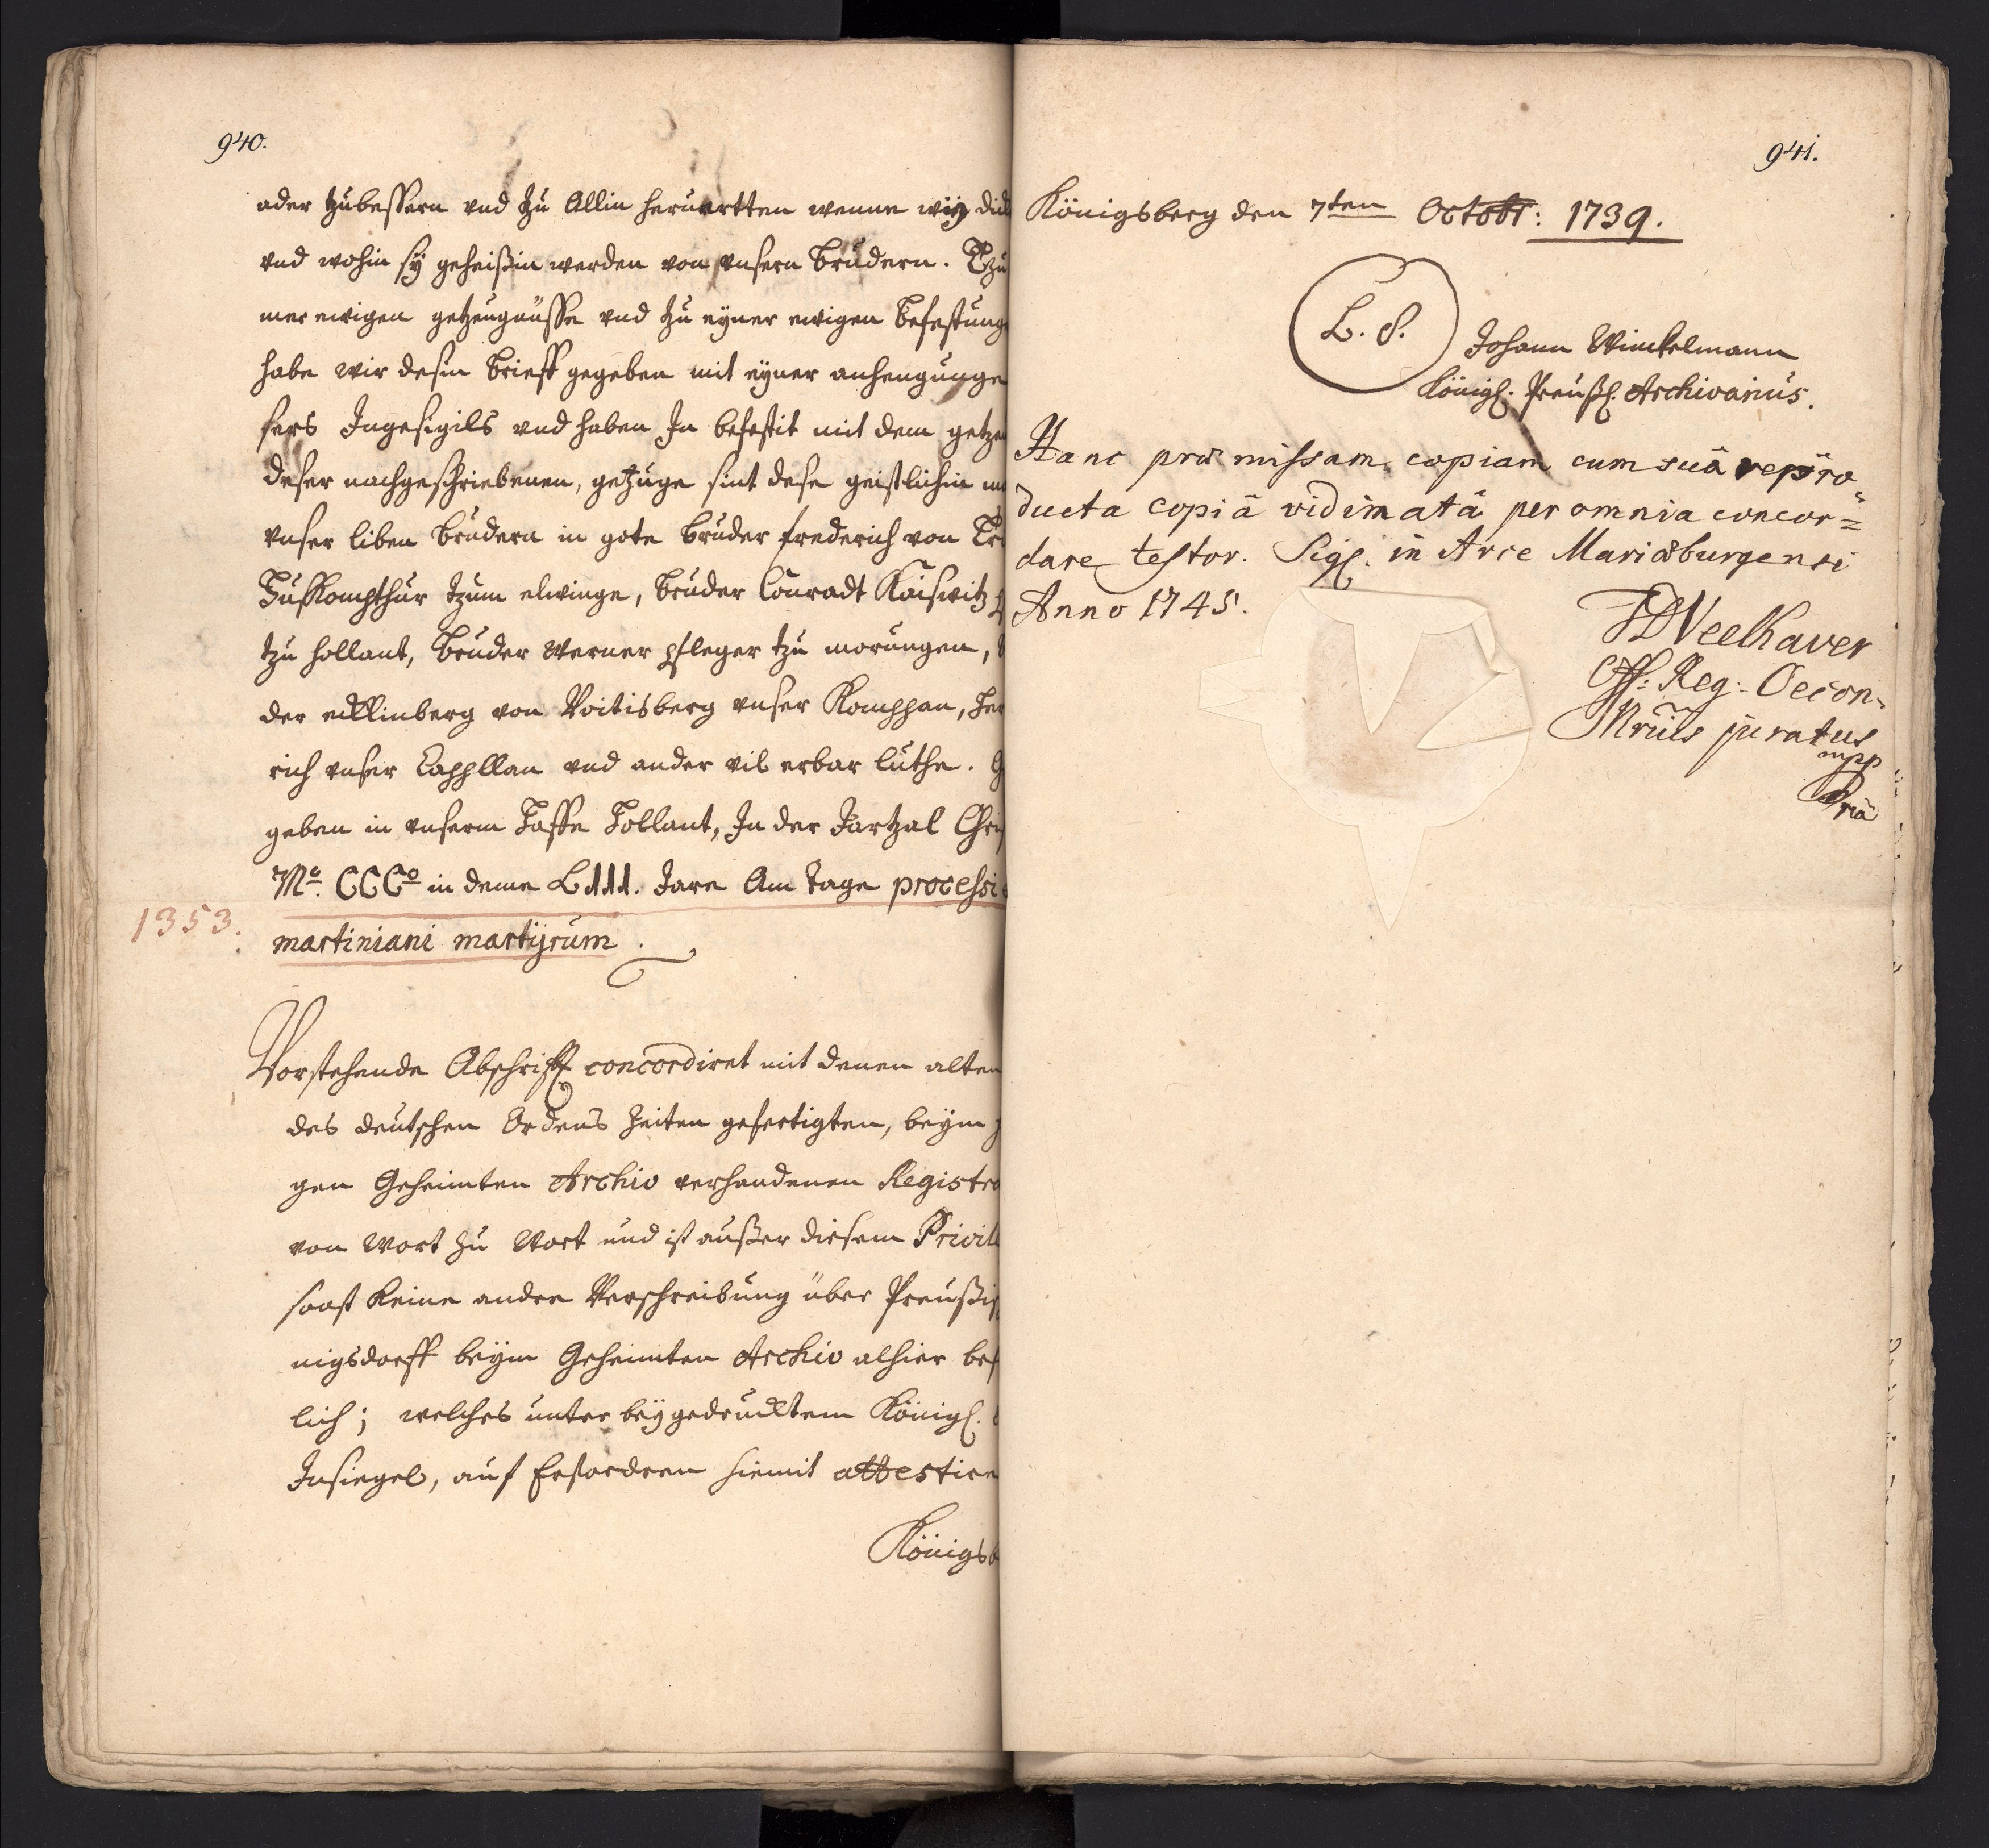 940.
ader tzubessern vnd tzu Allin herwertten wenne wir dick
vnd wohin sÿ geheißin werden von vnsern brudern. Tzu
mer ewigen getzeugnüsse vnd tzu eyner ewigen befestung
habe wir desin brieff gegeben mit eyner anhengunge
sers Ingesigils vnd haben In befestit mit dem getze
deser nachgeschriebenen, getzuge sint dese geistlichin
vnser liben brudern in gote bruder frederich von
Huskompthur tzum elwinge, bruder Conradt Kaiswitz
tzu hollant, bruder Werner pfleger tzu morungen,
der ecklinberg von Voitisberg vnser Komppan, her
rich vnser Cappllan vnd ander vil erbar luthe. G
geben in vnserm Hasse Hollant, In der Jartzal Chr
Mo. CCCo in deme LIII. Jare Am tage processi
1353.
martiniani martÿrum.
Vorstehende Abschrifft concordiret mit denen alten
des deutschen Ordens Zeiten gefertigten, beÿm
gen Geheimten Archiv verhandenen Registra
von Wort zu Wort und ist außer diesem Privile
sonst keine andre Verschreibung über Preußis
nigsdorff beÿm Geheimten Archiv alhier bef
lich; welches unter beÿgedrucktem Königl.
Insiegel, auf Erfordern hiemit attestire
Königsb
941.
Königsberg den 7ten Octobr: 1739.
L. S.
Johann Winckelmann
Königl. Preußl. Archivarius.
Hanc præmissam copiam cum suâ repro
ducta copiâ vidimatâ per omnia concor=
dare testor. Sigl. in Arce Mariæburgensi
Anno 1745.
Neelhaver
Off: Reg: Oecon.
Mriæ juratus
mpp